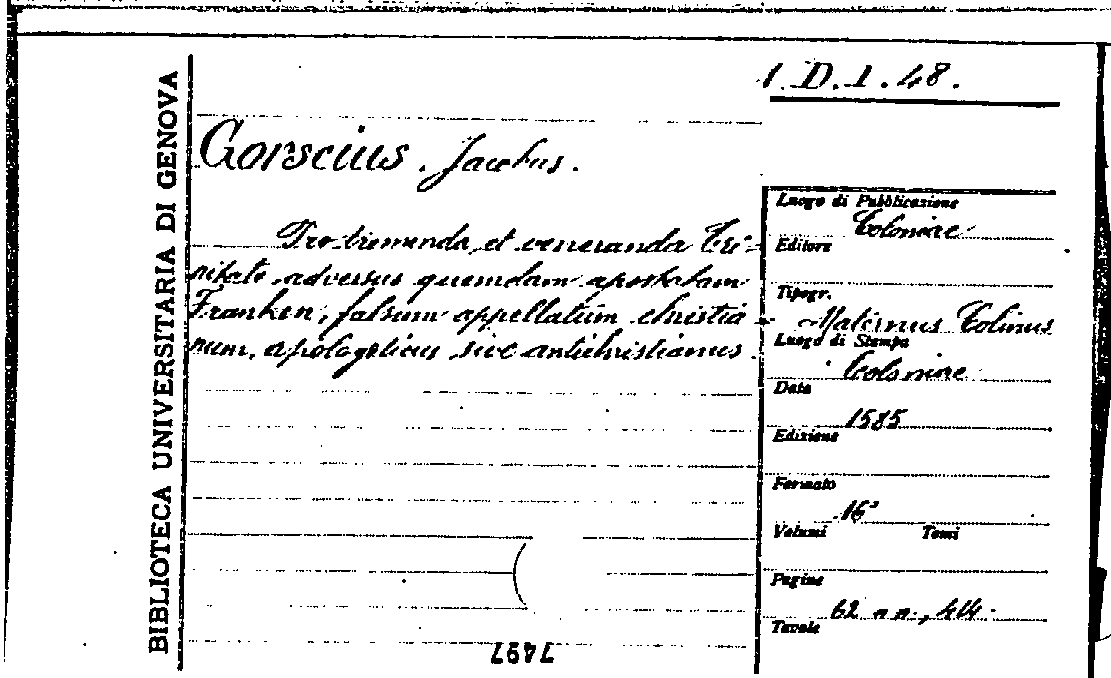 1.D.1.48.
BIBLIOTECA UNIVERSITARIA DI GENOVA
Gorscius, Jacobus.
Pro tremenda, et veneranda Tri-
nitate adversus quemdam apostatam
Franken, falsum appellatum christia-
num, apologeticus sive antichristianus.
Luogo di Pubblicazione
Coloniae
Editore
Tipogr.
Maternus Colinus
Luogo di Stampa
Coloniae
Data
1585
Edizione
Formato
16°
Volumi Tomi
Pagine
62 nn., 414.
Tavole
7497